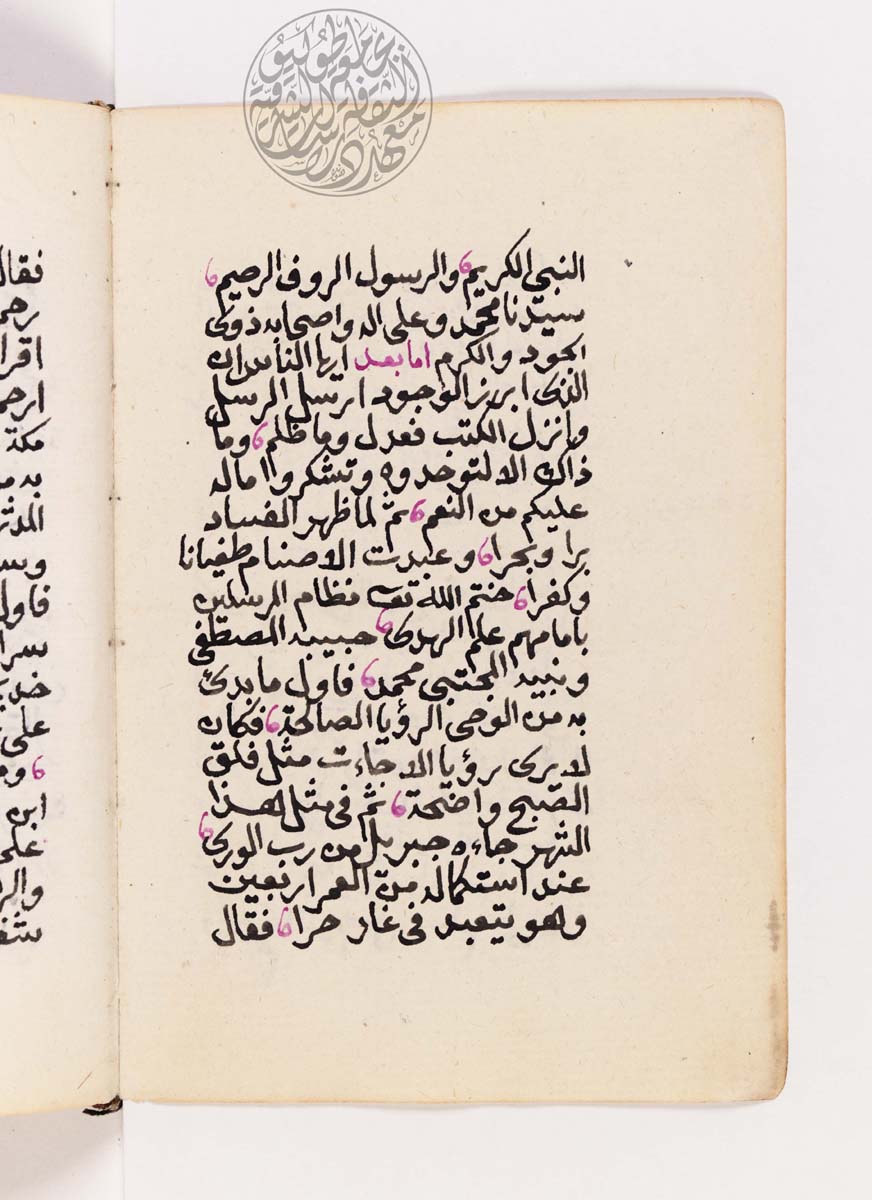 النبي الكريم والرسول الروف الرحيم
سيدنا محمد وعلى اله واصحابه ذوى
الجود والكرم اما بعد ايها الناس ان
الذى ابرز الوجود ارسل الرسل
وانزل الكتب فعدل وما ظلم وما
ذاك الا لتوحدوه وتشكروا ما له
عليكم من النعم ثم لما ظهر الفساد
برا وبحرا وعبدت الاصنام طغيانا
وكفرا ختم الله تعـ نظام المرسلين
بامامهم علم الهدى حبيبه المصطفى
ونبيه المجتبى محمد فاول ما بدئ
به من الوحى الرؤيا الصالحة فكان
لا يرى رؤيا الا جاءت مثل فلق
الصبح واضحة ثم فى مثل هذا
الشهر جاءه جبريل من رب الورى
عند استكماله من العمر اربعين
وهو يتعبد فى غار حرا فقال